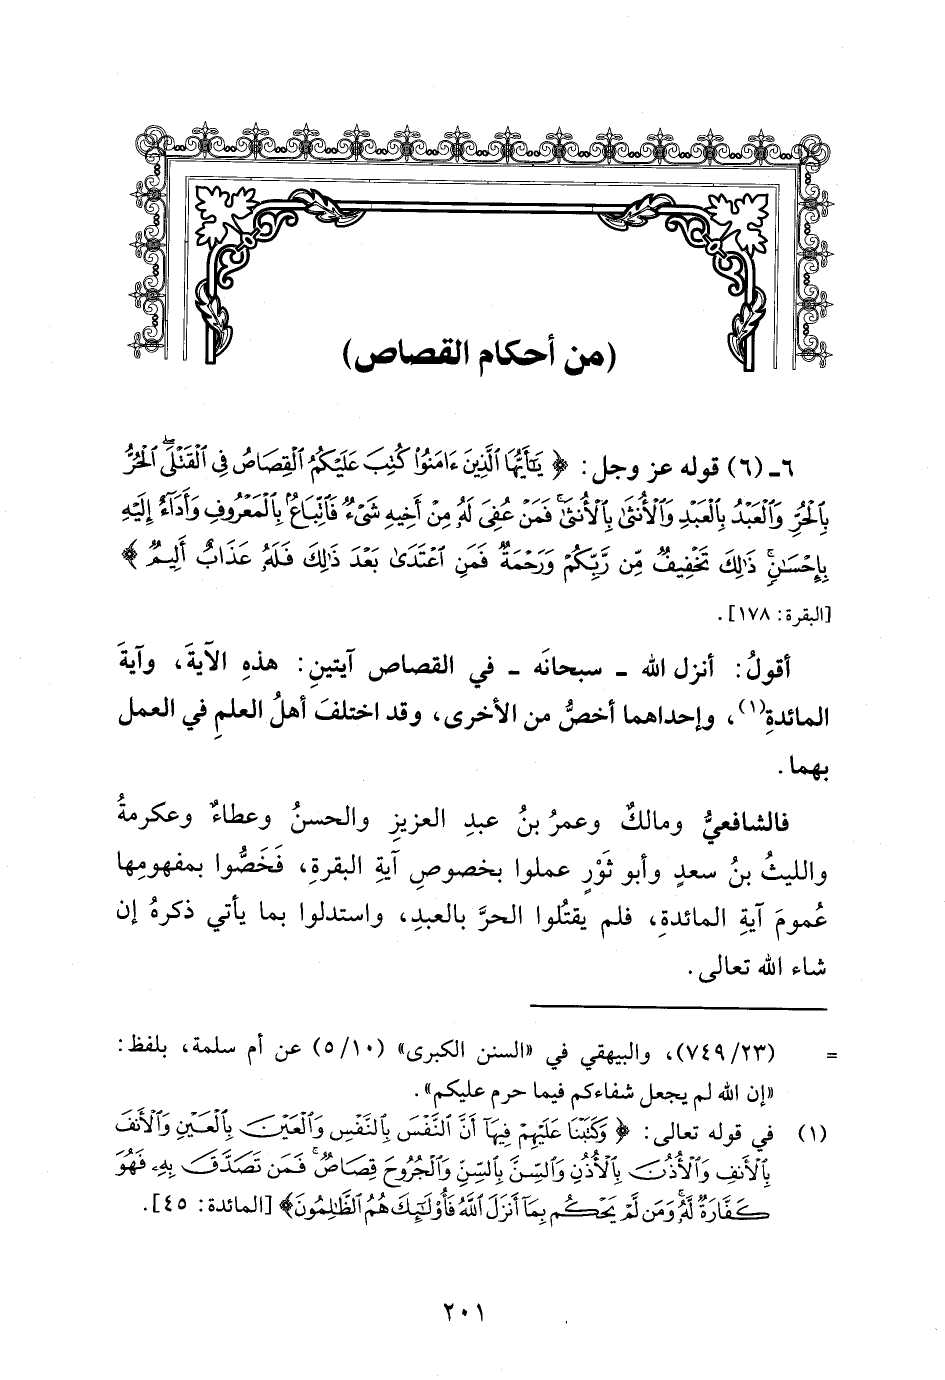 (من أحكام القصاص)
٦ـ (٦) قوله عز وجل: ﴿ يَٰٓأَيُّهَا ٱلَّذِينَ ءَامَنُوا۟ كُتِبَ عَلَيْكُمُ ٱلْقِصَاصُ فِى ٱلْقَتْلَى ۖ ٱلْحُرُّ
بِٱلْحُرِّ وَٱلْعَبْدُ بِٱلْعَبْدِ وَٱلْأُنثَىٰ بِٱلْأُنثَىٰ ۚ فَمَنْ عُفِىَ لَهُۥ مِنْ أَخِيهِ شَىْءٌ فَٱتِّبَاعٌۢ بِٱلْمَعْرُوفِ وَأَدَآءٌ إِلَيْهِ
بِإِحْسَٰنٍ ۗ ذَٰلِكَ تَخْفِيفٌ مِّن رَّبِّكُمْ وَرَحْمَةٌ ۗ فَمَنِ ٱعْتَدَىٰ بَعْدَ ذَٰلِكَ فَلَهُۥ عَذَابٌ أَلِيمٌ ﴾
[البقرة: ١٧٨].
أقولُ: أنزل الله ـ سبحانَه ـ في القصاص آيتينِ: هذهِ الآيةَ، وآيةَ
المائدةِ(١)، وإحداهما أخصُّ من الأخرى، وقد اختلفَ أهلُ العلمِ في العمل
بهما.
فالشافعيُّ ومالكٌ وعمرُ بنُ عبدِ العزيزِ والحسنُ وعطاءٌ وعكرمةُ
والليثُ بنُ سعدٍ وأبو ثَوْرٍ عملوا بخصوصِ آيةِ البقرةِ، فَخَصُّوا بمفهومِها
عُمومَ آيةِ المائدةِ، فلم يقتُلوا الحرَّ بالعبدِ، واستدلوا بما يأتي ذكرهُ إن
شاء الله تعالى.
= (٢٣/ ٧٤٩)، والبيهقي في «السنن الكبرى» (١٠/ ٥) عن أم سلمة، بلفظ:
«إن الله لم يجعل شفاءكم فيما حرم عليكم».
(١) في قوله تعالى: ﴿ وَكَتَبْنَا عَلَيْهِمْ فِيهَآ أَنَّ ٱلنَّفْسَ بِٱلنَّفْسِ وَٱلْعَيْنَ بِٱلْعَيْنِ وَٱلْأَنفَ
بِٱلْأَنفِ وَٱلْأُذُنَ بِٱلْأُذُنِ وَٱلسِّنَّ بِٱلسِّنِّ وَٱلْجُرُوحَ قِصَاصٌ ۚ فَمَن تَصَدَّقَ بِهِۦ فَهُوَ
كَفَّارَةٌ لَّهُۥ ۚ وَمَن لَّمْ يَحْكُم بِمَآ أَنزَلَ ٱللَّهُ فَأُو۟لَٰٓئِكَ هُمُ ٱلظَّٰلِمُونَ﴾ [المائدة: ٤٥].
٢٠١